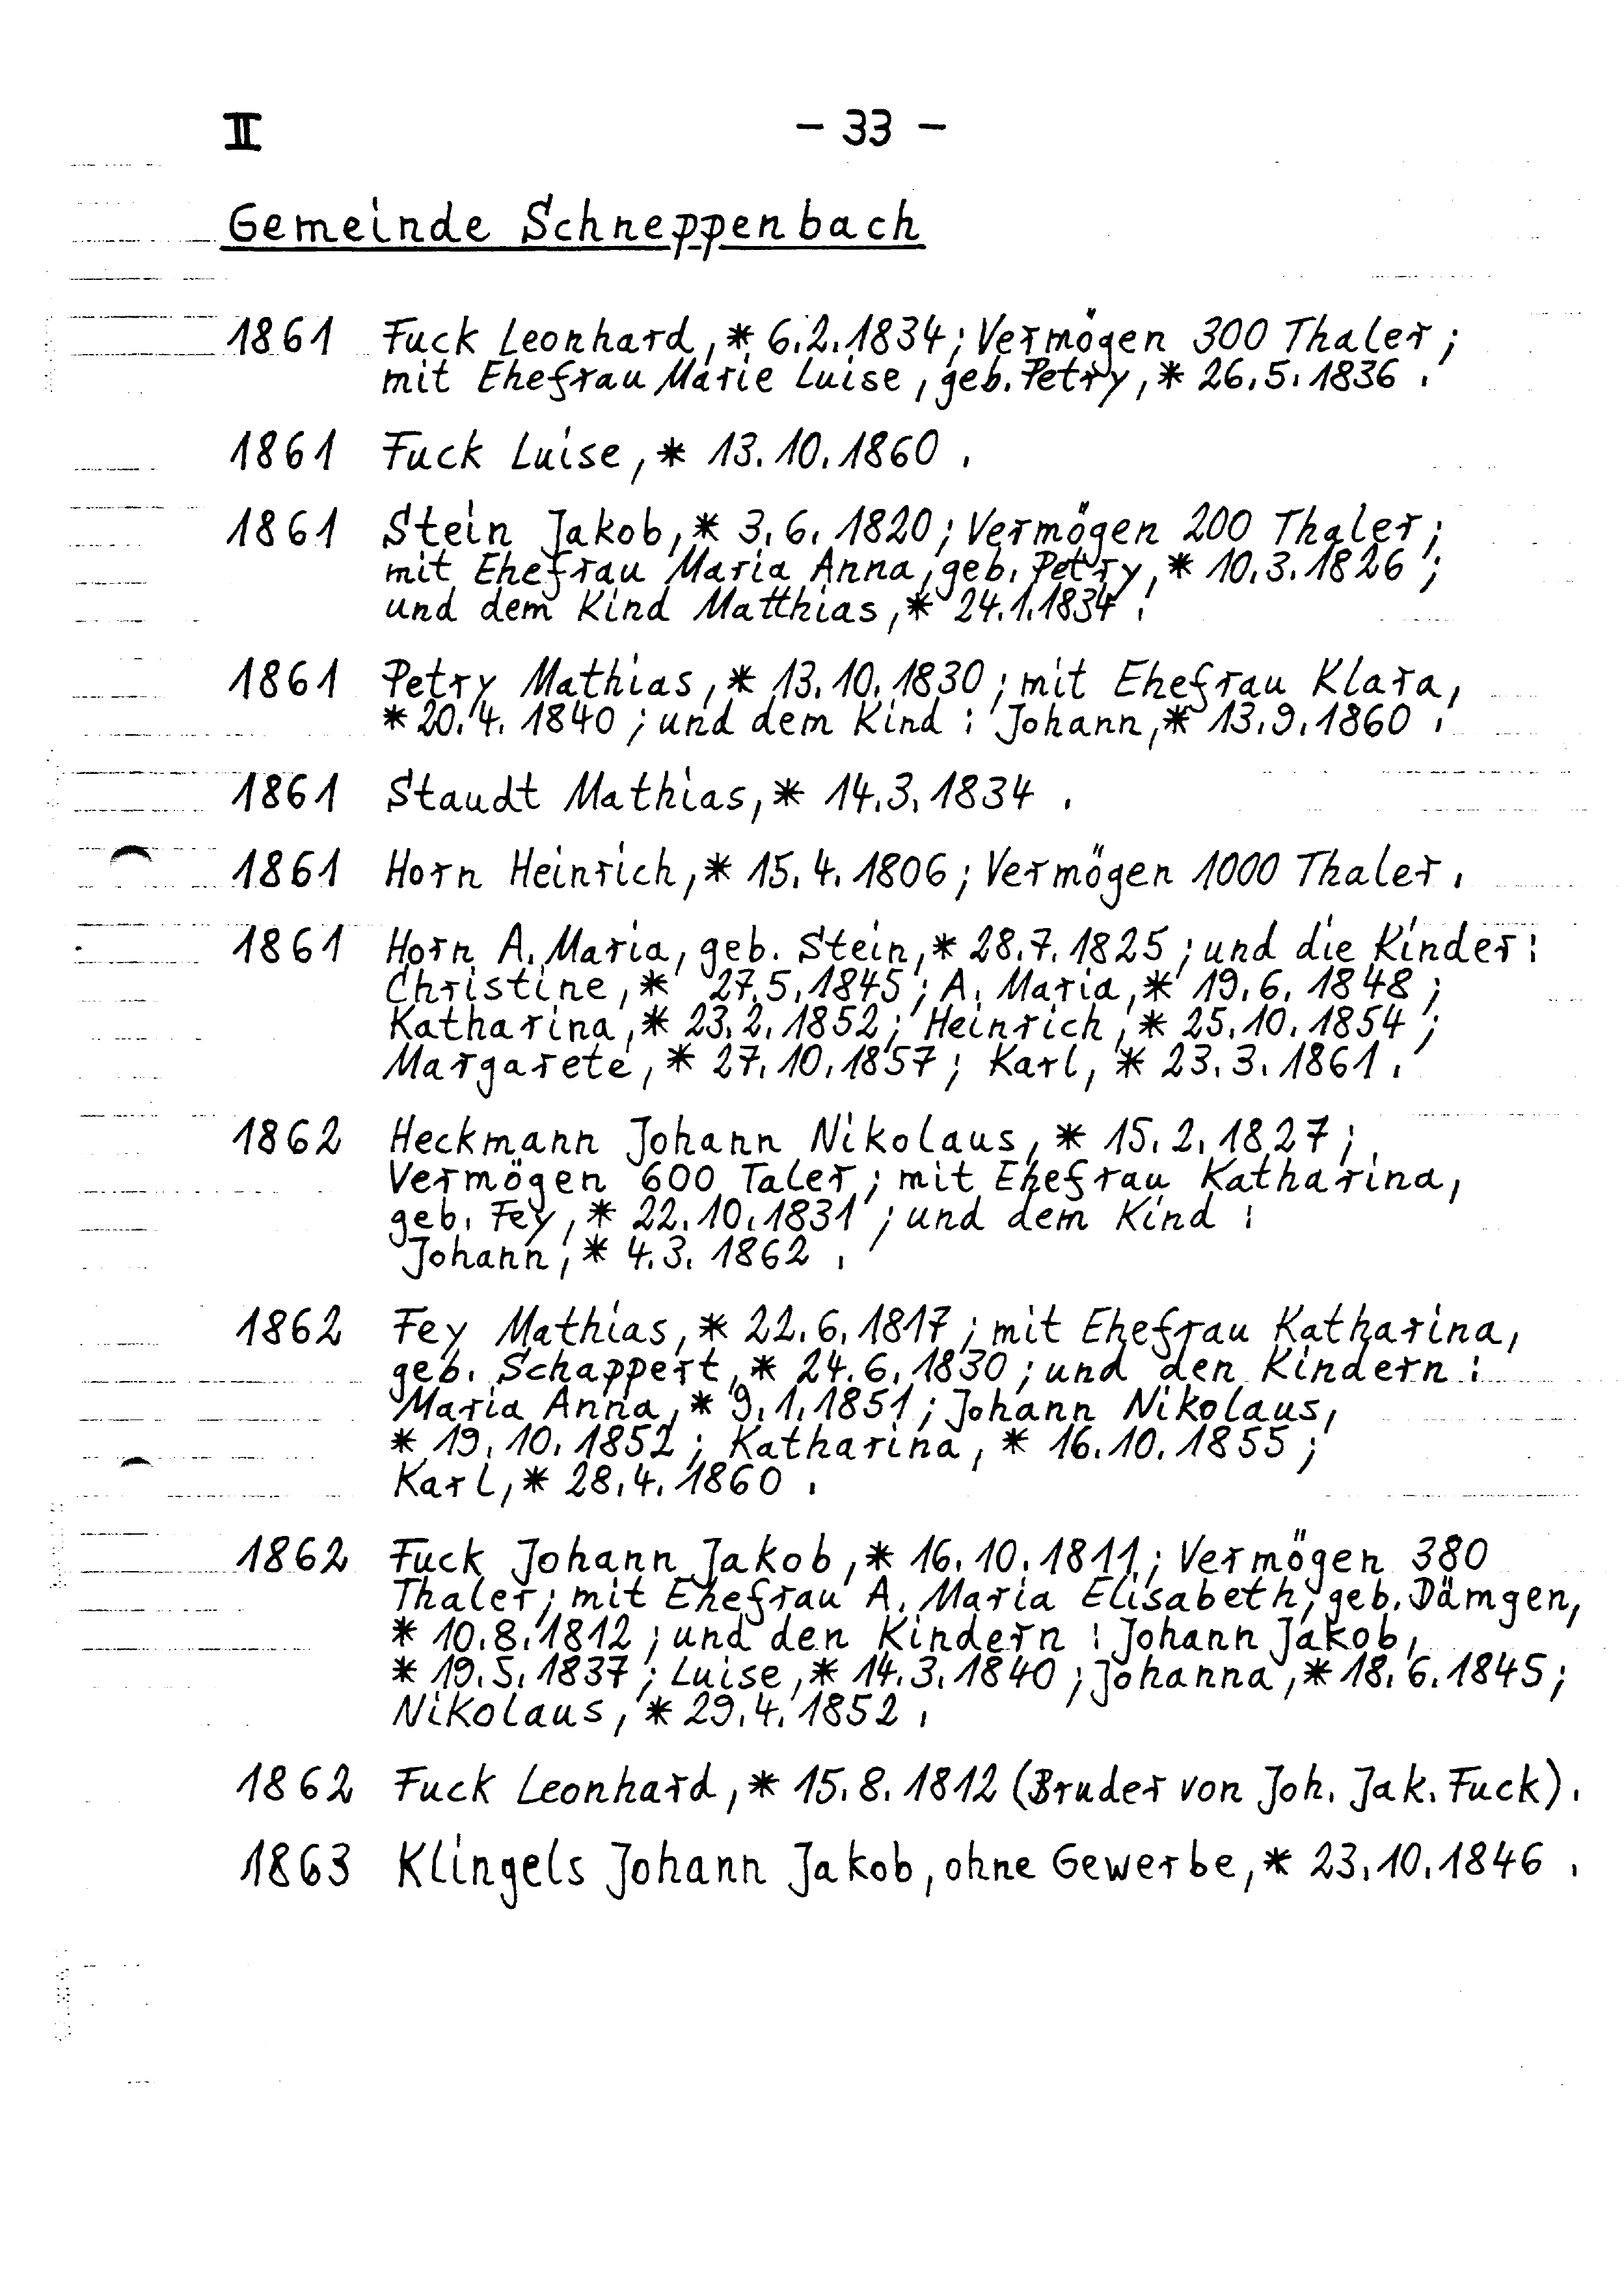 II - 33 -
Gemeinde Schneppenbach
1861 Fuck Leonhard, * 6.2.1834; Vermögen 300 Thaler;
mit Ehefrau Marie Luise, geb. Petry, * 26.5.1836.
1861 Fuck Luise, * 13.10.1860.
1861 Stein Jakob, * 3.6.1820; Vermögen 200 Thaler;
mit Ehefrau Maria Anna, geb. Petry, * 10.3.1826;
und dem Kind Matthias, * 24.1.1834.
1861 Petry Mathias, * 13.10.1830; mit Ehefrau Klara,
* 20.4.1840; und dem Kind: Johann, * 13.9.1860.
1861 Staudt Mathias, * 14.3.1834.
1861 Horn Heinrich, * 15.4.1806; Vermögen 1000 Thaler.
1861 Horn A. Maria, geb. Stein, * 28.7.1825; und die Kinder:
Christine, * 27.5.1845; A. Maria, * 19.6.1848;
Katharina, * 23.2.1852; Heinrich, * 25.10.1854;
Margarete, * 27.10.1857; Karl, * 23.3.1861.
1862 Heckmann Johann Nikolaus, * 15.2.1827;
Vermögen 600 Taler; mit Ehefrau Katharina,
geb. Fey, * 22.10.1831; und dem Kind:
Johann, * 4.3.1862.
1862 Fey Mathias, * 22.6.1817; mit Ehefrau Katharina,
geb. Schappert, * 24.6.1830; und den Kindern:
Maria Anna, * 9.1.1851; Johann Nikolaus,
* 19.10.1852; Katharina, * 16.10.1855;
Karl, * 28.4.1860.
1862 Fuck Johann Jakob, * 16.10.1811; Vermögen 380
Thaler; mit Ehefrau A. Maria Elisabeth, geb. Dämgen,
* 10.8.1812; und den Kindern: Johann Jakob,
* 19.5.1837; Luise, * 14.3.1840; Johanna, * 18.6.1845;
Nikolaus, * 29.4.1852.
1862 Fuck Leonhard, * 15.8.1812 (Bruder von Joh. Jak. Fuck).
1863 Klingels Johann Jakob, ohne Gewerbe, * 23.10.1846.